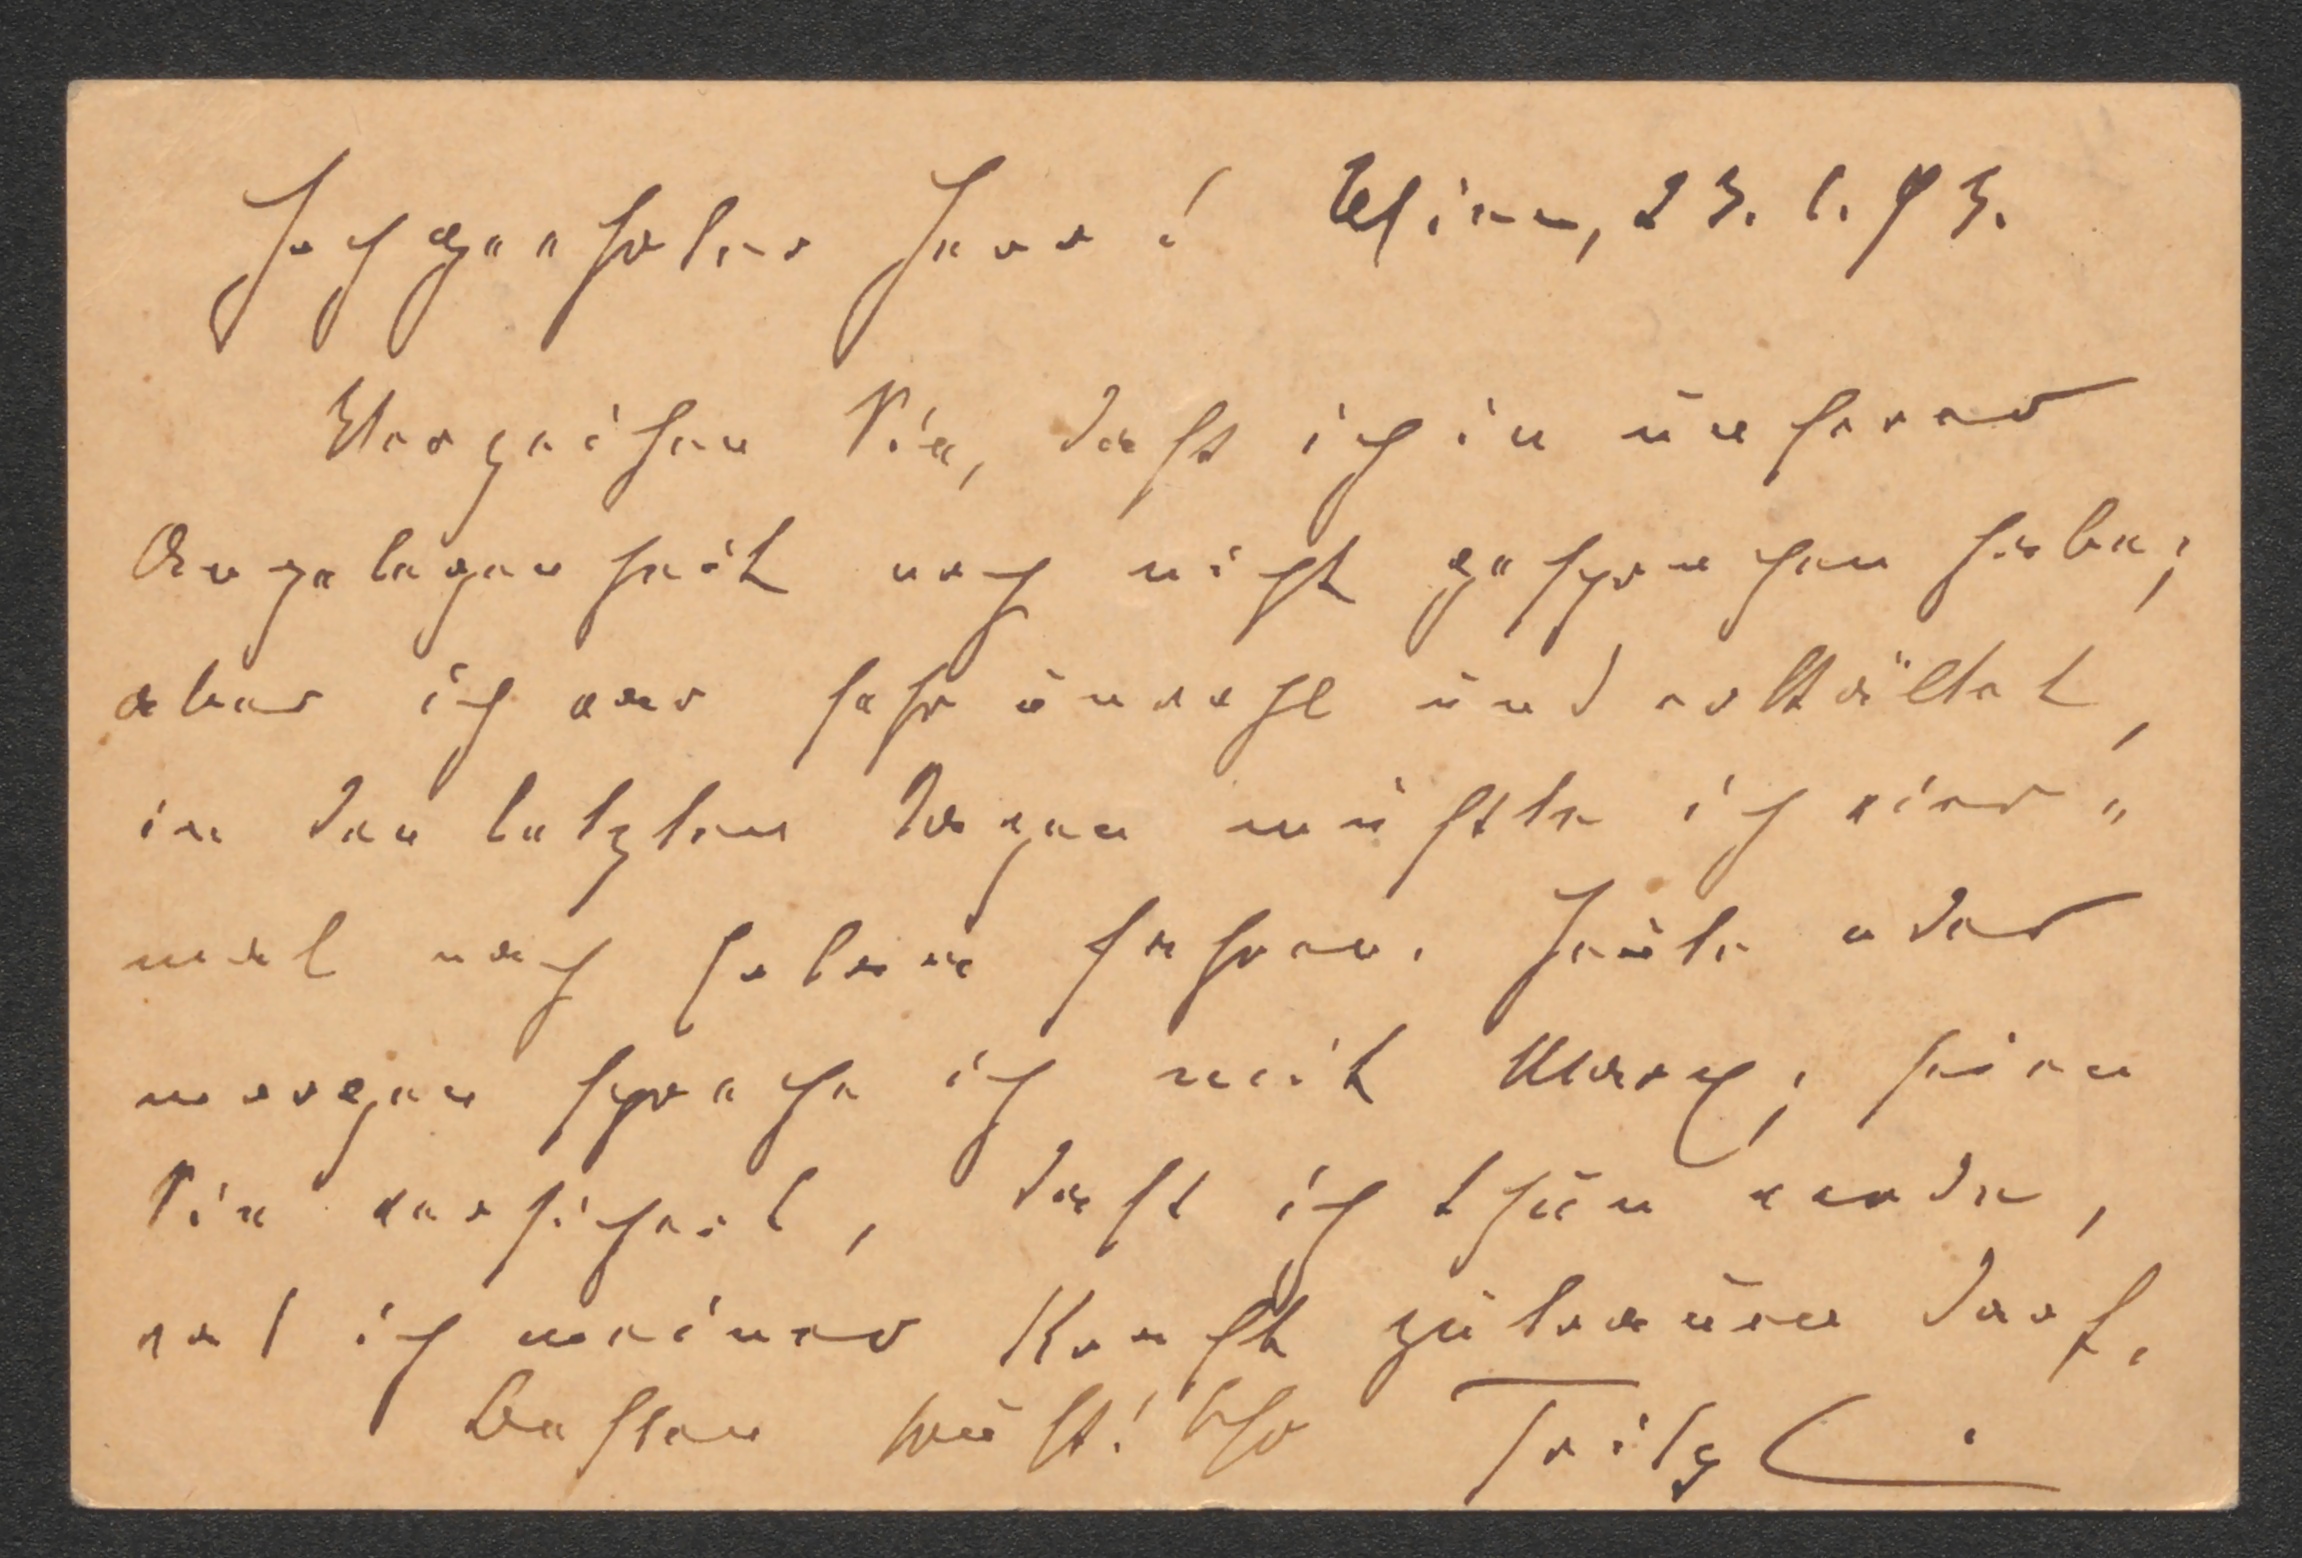 Hochgeehrter Herr! Wien, 23. 1. 93.
Verzeihen Sie, daß ich in unserer
Angelegenheit noch nicht gesprochen habe;
aber ich war sehr unwohl und erkältet,
in den letzten Tagen mußte ich vier-
mal nach fahren. Heute oder
morgen spreche ich mit Marx; seien
Sie versichert, daß ich thun werde,
was ich meiner Kraft zutrauen darf.
Besten Gruß! Ihr